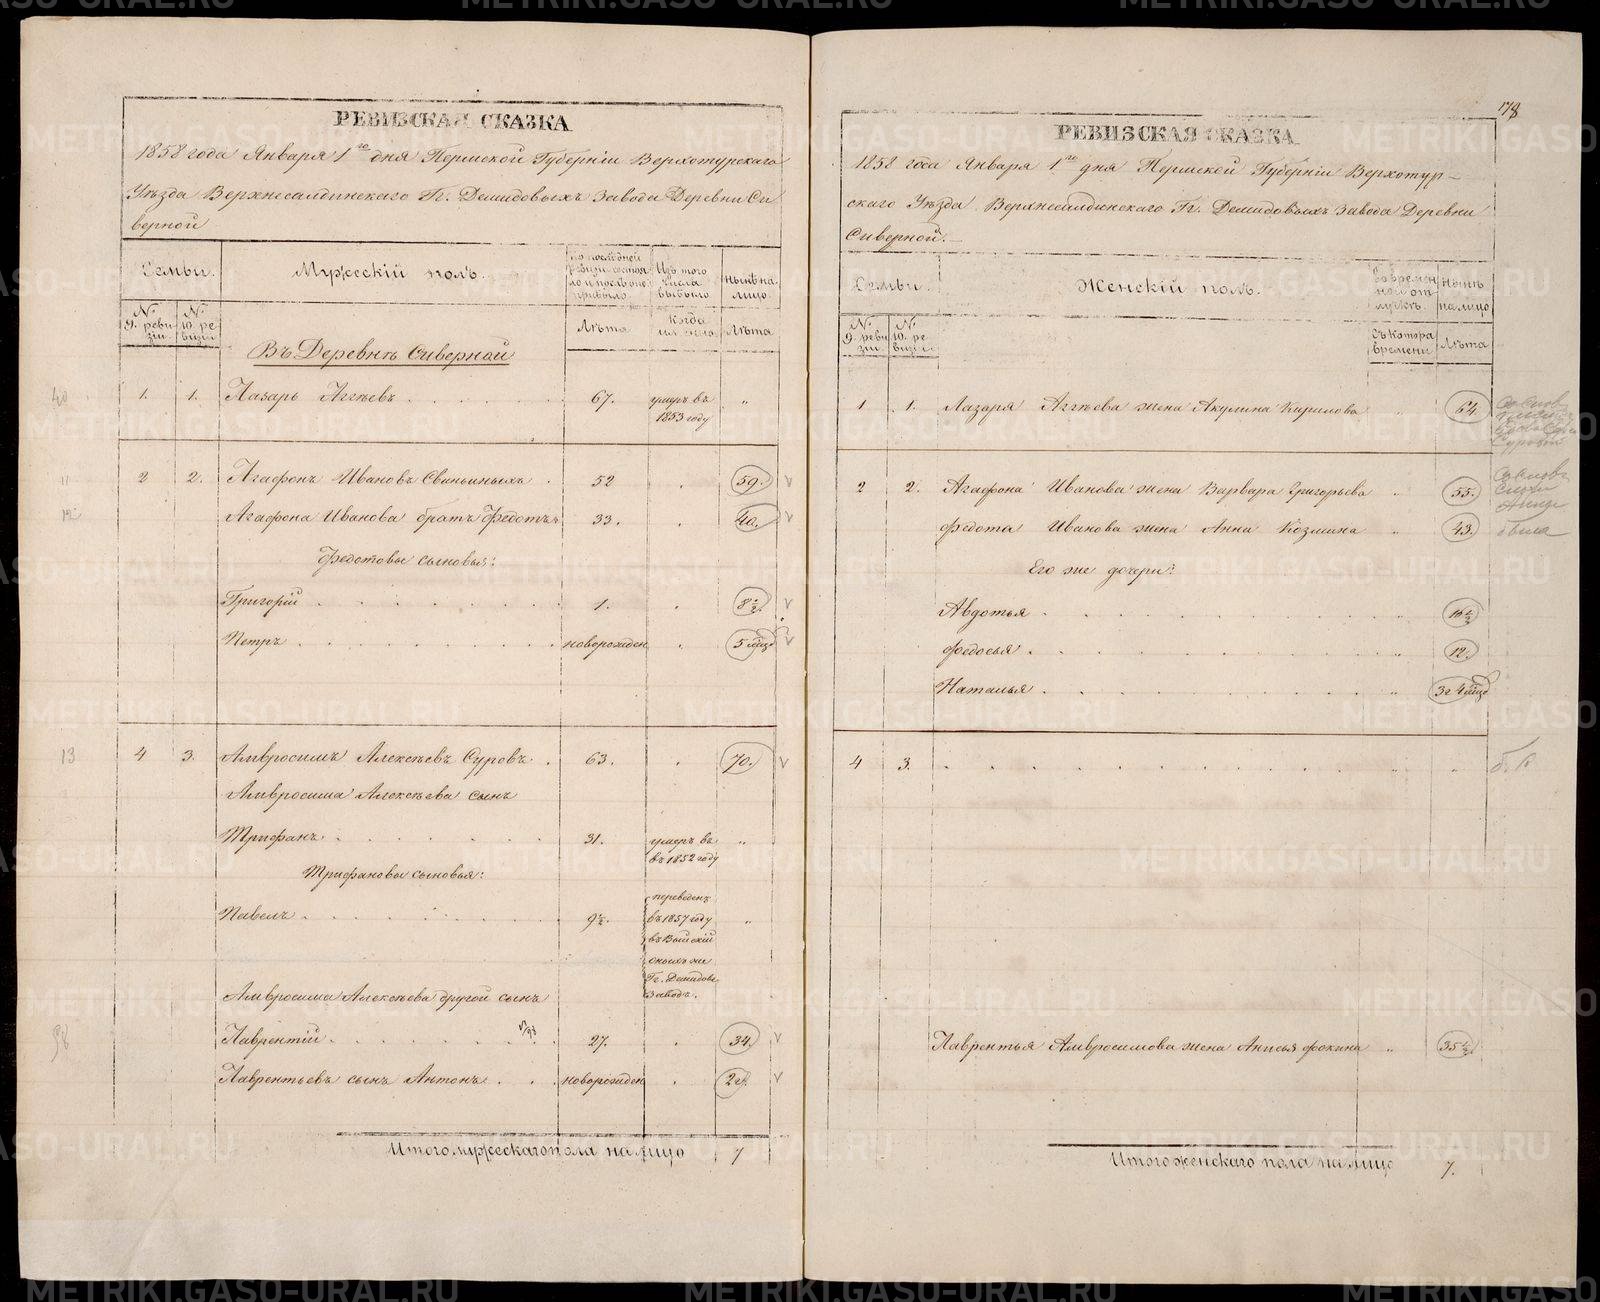 РЕВИЗСКАЯ СКАЗКА
1858 года Января 1го дня Пермской Губерніи Верхотурскаго
Уѣзда Верхнесалдинскаго Гг. Демидовыхъ Завода Деревни Си
верной
Семьи.
Мужескій полъ.
По послѣдней ревизіи состояло и послѣ оной прибыло.
Изъ того числа выбыло
Нынѣ на лицо
№ 9. ревизіи
№ 10. ревизіи
Лѣта
Когда именно
Лѣта
Въ Деревнѣ Сиверной
40 1. 1. Лазарь Аггѣевъ 67. умеръ въ 1853 году "
11 2 2. Агафонъ Ивановъ Свиньиныхъ 52 59. v
12 Агафона Иванова братъ Федотъ 33. 40. v
Федотовы сыновья:
Григорій 1. 8½. v
Петръ новорожден 5 мѣсяц v
13 4 3. Амвросимъ Алексѣевъ Суровъ 63. 70. v
Амвросима Алексѣева сынъ
Трифанъ 31. умеръ въ въ 1852 году "
Трифановы сыновья:
Павелъ 9½. переведенъ въ 1857 году въ Вы­йскій оныхъ же Гг. Демидовы Заводъ. "
Амвросима Алексѣева другой сынъ
Лаврентій 27. 34. v
Лаврентьевъ сынъ Антонъ новорожден 2г. v
Итого мужескаго пола на лицо 7
178
РЕВИЗСКАЯ СКАЗКА
1858 года Января 1го дня Пермской Губерніи Верхотур-
скаго Уѣзда Верхнесалдинскаго Гг. Демидовыхъ Завода Деревни
Сиверной.
Семьи.
Женскій полъ.
Во временной отлучкѣ.
Нынѣ на лицо
№ 9. ревизіи
№ 10. ревизіи
Съ котора времени
Лѣта
1 1. Лазаря Аггѣева жена Акулина Кирилова 64.
2 2. Агафона Иванова жена Варвара Григорьева " 55.
Федота Иванова жена Анна Козмина " 43.
Его же дочери:
Авдотья 16½
Федосья 12.
Наталья 3г 4 мѣсяц
4 3.
Лаврентья Амвросимова жена Анисья Фокина " 35½
Итого женскаго пола на лицо 7.
METRIKI.GASO-URAL.RU